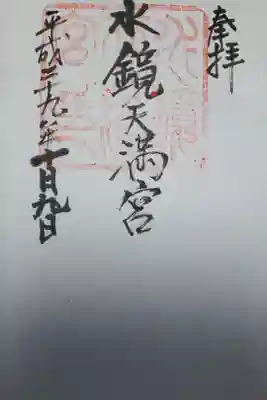 奉拝
水鏡天満宮
平成二十九年十月九日